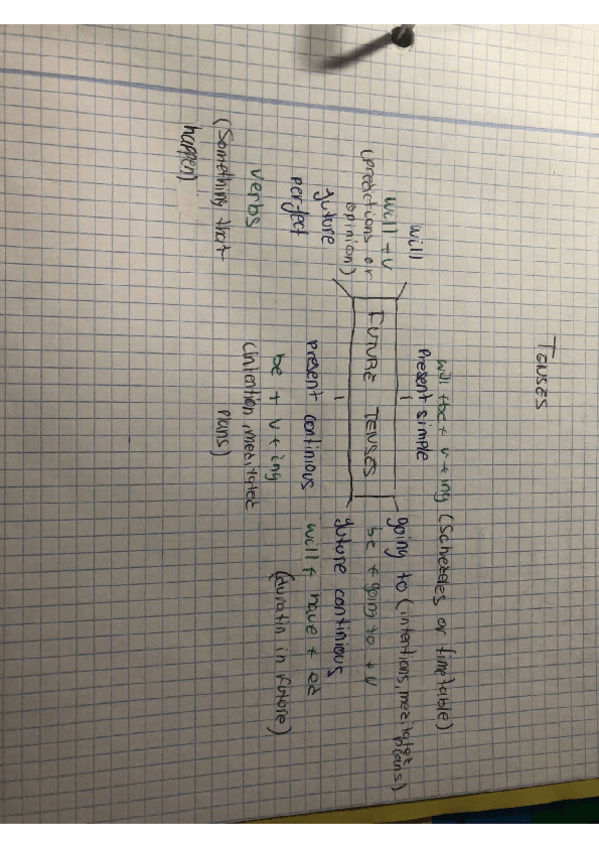 TENSES
will
will + v
(predictions or
opinion)
will + be + v + ing (Scheteles or timetable)
Present simple
going to (intentions, meditatet
plans)
be + going to + v
FUTURE TENSES
future
perfect
verbs
(Something that
happen)
present continious
be + v + ing
(intention, meditatet
plans)
future continious
will + have + ed
(duratin in future)